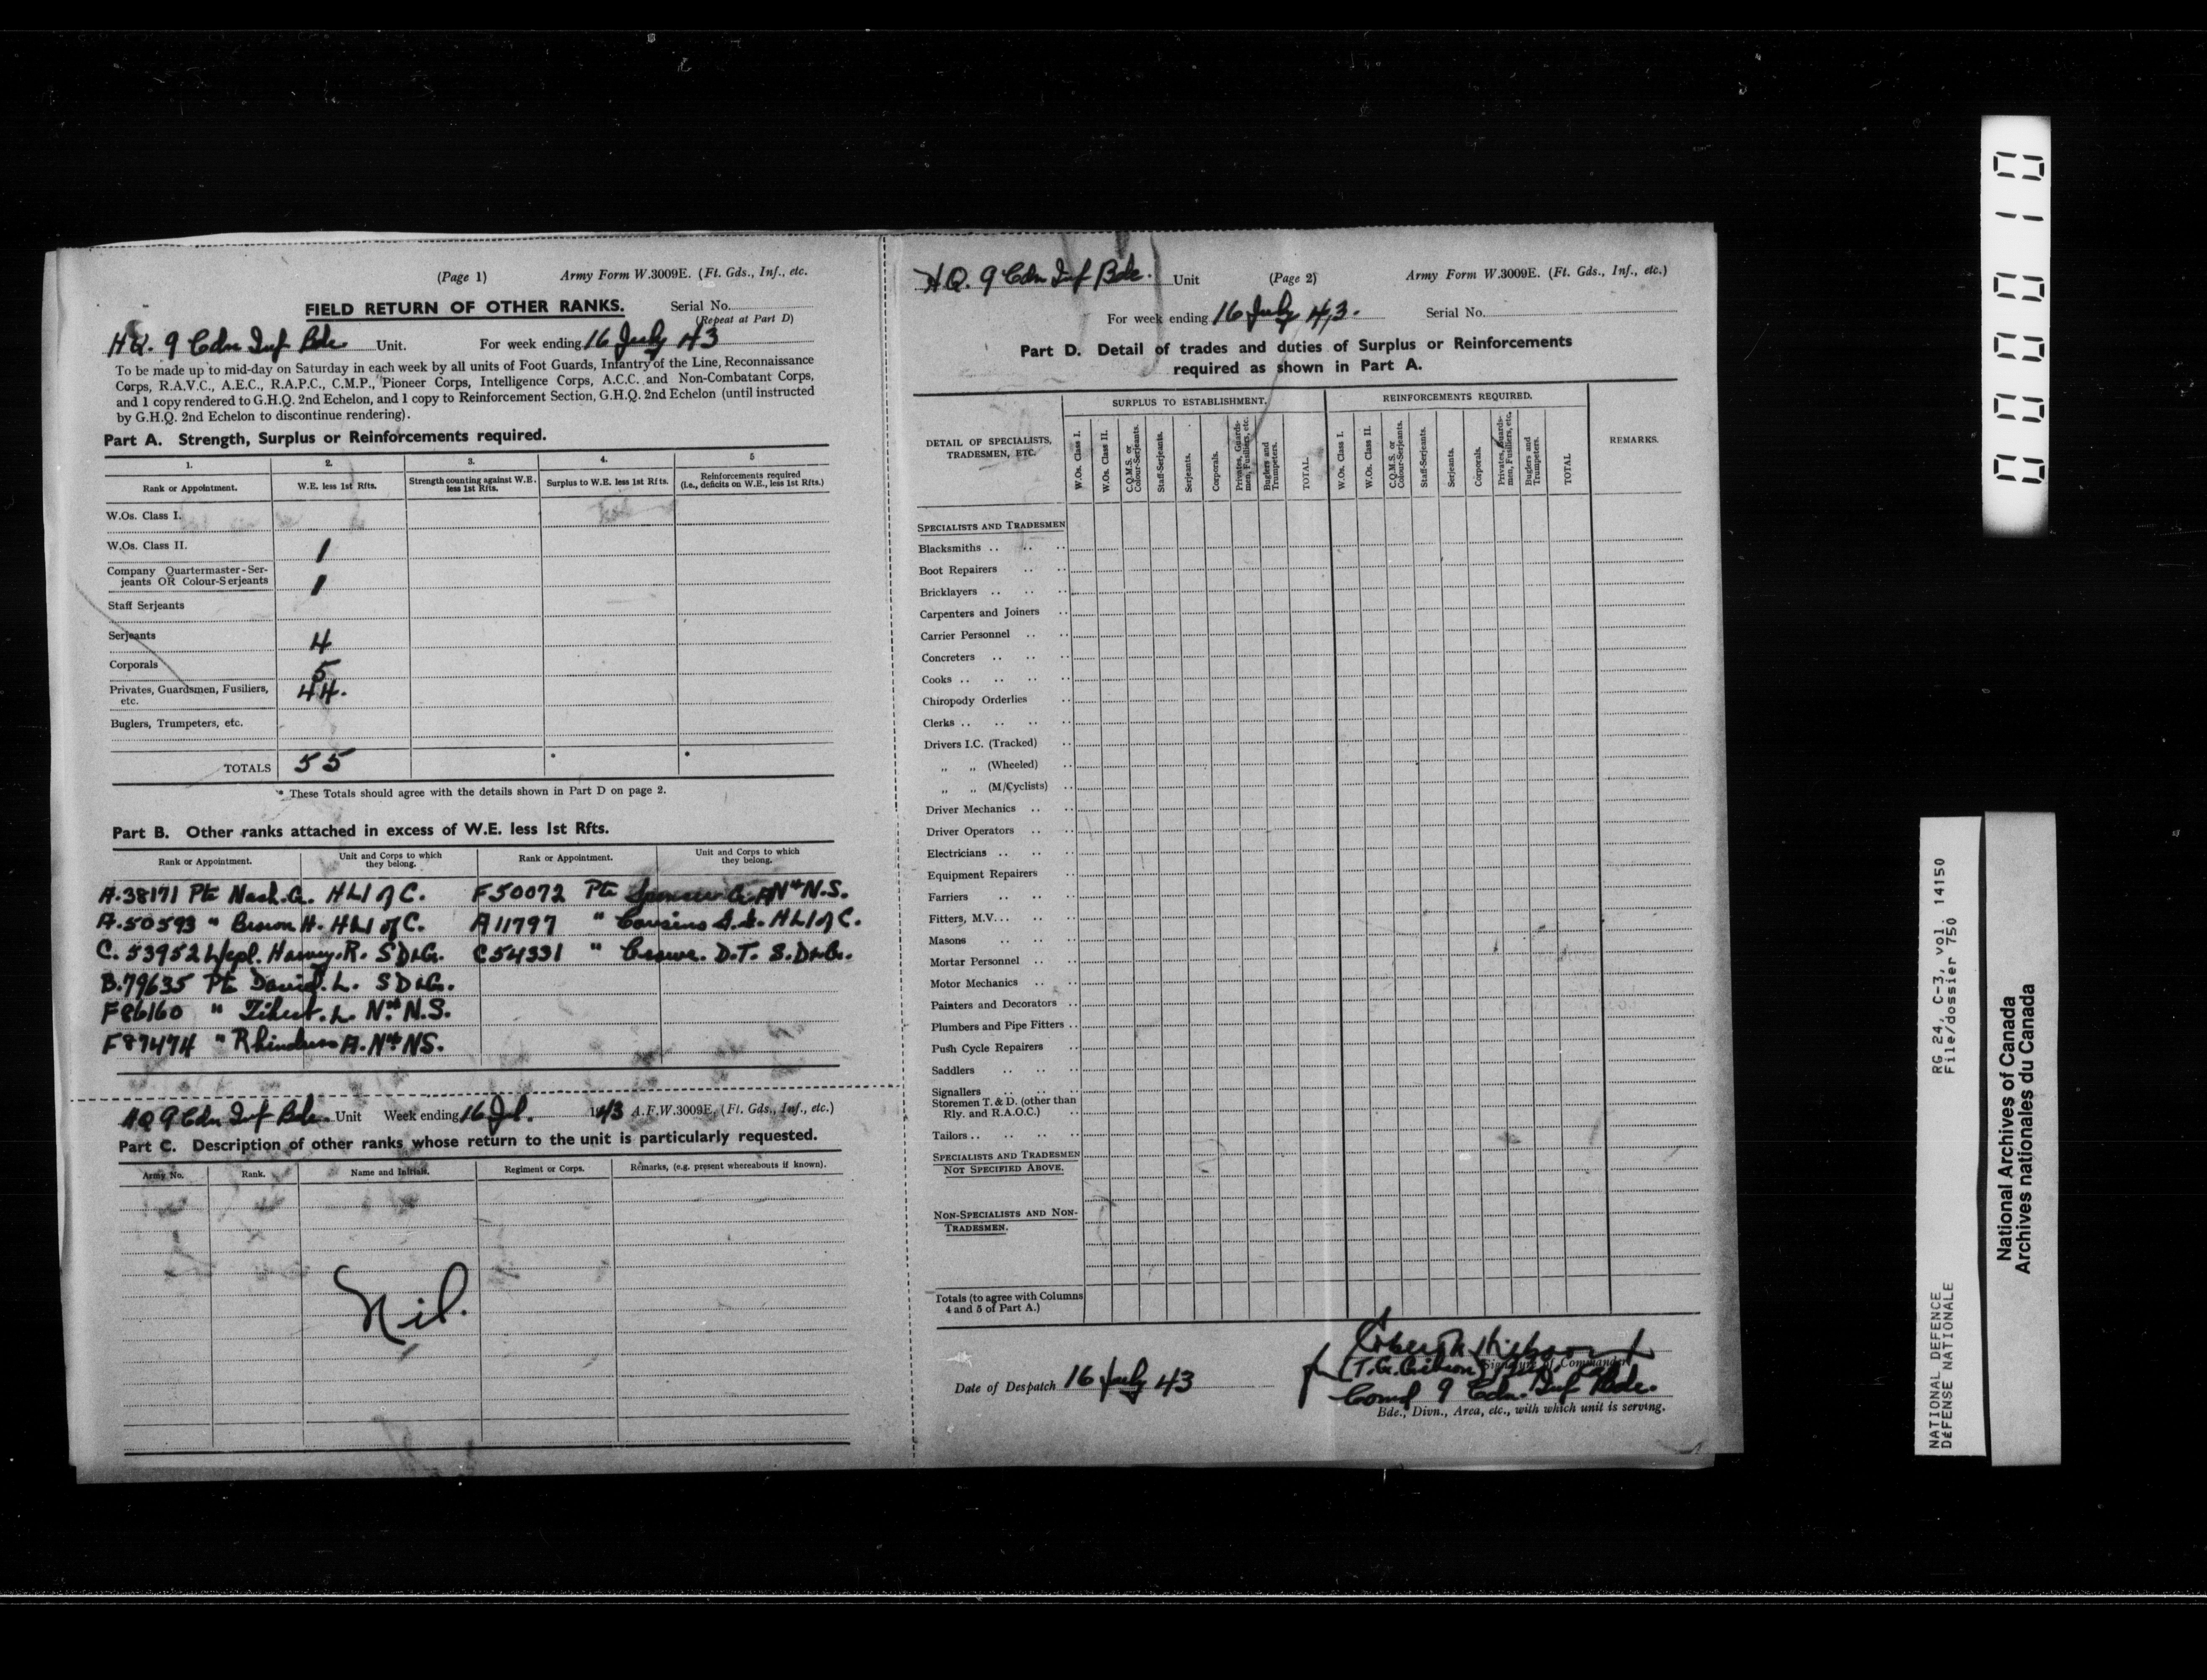 (Page 1) Army Form W.3009E. (Ft. Gds., Inf., etc.
FIELD RETURN OF OTHER RANKS. Serial No.
(Repeat at Part D)
HQ. 9 Cdn Inf Bde. Unit. For week ending 16 July 43
To be made up to mid-day on Saturday in each week by all units of Foot Guards, Infantry of the Line, Reconnaissance
Corps, R.A.V.C., A.E.C., R.A.P.C., C.M.P., Pioneer Corps, Intelligence Corps, A.C.C. and Non-Combatant Corps,
and 1 copy rendered to G.H.Q. 2nd Echelon, and 1 copy to Reinforcement Section, G.H.Q. 2nd Echelon (until instructed
by G.H.Q. 2nd Echelon to discontinue rendering).
Part A. Strength, Surplus or Reinforcements required.
1. 2. 3. 4. 5
Rank or Appointment. W.E. less 1st Rfts. Strength counting against W.E. less 1st Rfts. Surplus to W.E. less 1st Rfts. Reinforcements required (i.e., deficits on W.E., less 1st Rfts.)
W.Os. Class I.
W.Os. Class II. 1
Company Quartermaster-Ser-
jeants OR Colour-Serjeants 1
Staff Serjeants
Serjeants 4
Corporals 5
Privates, Guardsmen, Fusiliers, 44.
etc.
Buglers, Trumpeters, etc.
TOTALS 55 * *
* These Totals should agree with the details shown in Part D on page 2.
Part B. Other ranks attached in excess of W.E. less 1st Rfts.
Rank or Appointment. Unit and Corps to which they belong. Rank or Appointment. Unit and Corps to which they belong.
A.38171 Pte Nash.G. HLI of C. F50072 Pte Nth N.S.
A.50593 " Brown H. HLI of C. A11797 " Cousins HLI of C.
C.53952 L/cpl. Harvey.R. SD&G. C54331 " Crowe. D.T. S.D&G.
B.79635 Pte David.L. SD&G.
F86160 " L. Nth N.S.
F87474 " Rhindress A. Nth NS.
HQ 9 Cdn Inf Bde. Unit Week ending 16 Jul. 1943 A.F.W.3009E, (Ft. Gds., Inf., etc.)
Part C. Description of other ranks whose return to the unit is particularly requested.
Army No. Rank. Name and Initials. Regiment or Corps. Remarks, (e.g. present whereabouts if known).
Nil.
HQ. 9 Cdn Inf Bde. Unit (Page 2) Army Form W.3009E. (Ft. Gds., Inf., etc.)
For week ending 16 July 43. Serial No.
Part D. Detail of trades and duties of Surplus or Reinforcements
required as shown in Part A.
SURPLUS TO ESTABLISHMENT. REINFORCEMENTS REQUIRED.
DETAIL OF SPECIALISTS, TRADESMEN, ETC. W.Os. Class I. W.Os. Class II. C.Q.M.S. or Colour-Serjeants. Staff-Serjeants. Serjeants. Corporals. Privates, Guards-men, Fusiliers, etc. Buglers and Trumpeters. TOTAL. W.Os. Class I. W.Os. Class II. C.Q.M.S. or Colour-Serjeants. Staff-Serjeants. Serjeants. Corporals. Privates, Guards-men, Fusiliers, etc. Buglers and Trumpeters. TOTAL REMARKS.
SPECIALISTS AND TRADESMEN
Blacksmiths .. .. ..
Boot Repairers .. ..
Bricklayers .. .. ..
Carpenters and Joiners ..
Carrier Personnel .. ..
Concreters .. .. ..
Cooks .. .. .. ..
Chiropody Orderlies ..
Clerks .. .. .. ..
Drivers I.C. (Tracked) ..
„ „ (Wheeled) ..
„ „ (M/Cyclists) ..
Driver Mechanics .. ..
Driver Operators .. ..
Electricians .. .. ..
Equipment Repairers ..
Farriers .. .. ..
Fitters, M.V... .. ..
Masons .. .. ..
Mortar Personnel .. ..
Motor Mechanics .. ..
Painters and Decorators ..
Plumbers and Pipe Fitters ..
Push Cycle Repairers ..
Saddlers .. .. ..
Signallers .. .. ..
Storemen T. & D. (other than
Rly. and R.A.O.C.) ..
Tailors .. .. .. ..
SPECIALISTS AND TRADESMEN
NOT SPECIFIED ABOVE.
NON-SPECIALISTS AND NON-
TRADESMEN.
Totals (to agree with Columns
4 and 5 of Part A.)
Signature of Commander
(T.G. Gibson)
Date of Despatch 16 July 43
Comd 9 Cdn. Inf Bde.
Bde., Divn., Area, etc., with which unit is serving.
000010
RG 24, C-3, vol. 14150
File/dossier 750
NATIONAL DEFENCE
DÉFENSE NATIONALE
National Archives of Canada
Archives nationales du Canada